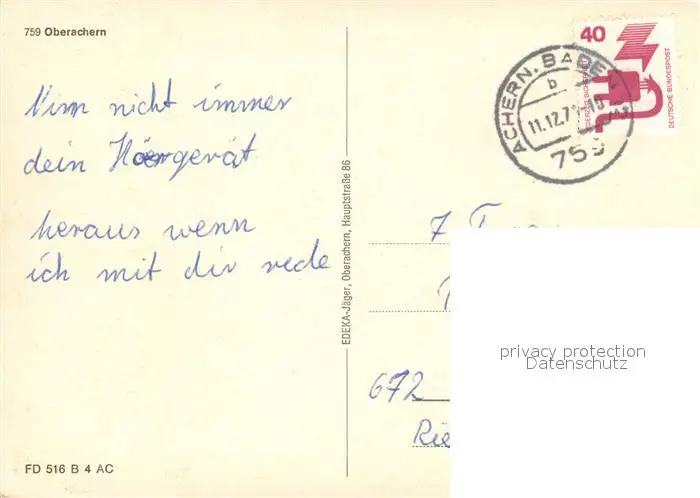 759 Oberachern
40
DEUTSCHE BUNDESPOST
ACHERN, BADEN
b
11.12.7
759
Nim nicht immer
dein Hörgerät
heraus wenn
ich mit dir rede
EDEKA-Jäger, Oberachern, Hauptstraße 86
7 T
672
Rie
privacy protection
Datenschutz
FD 516 B 4 AC